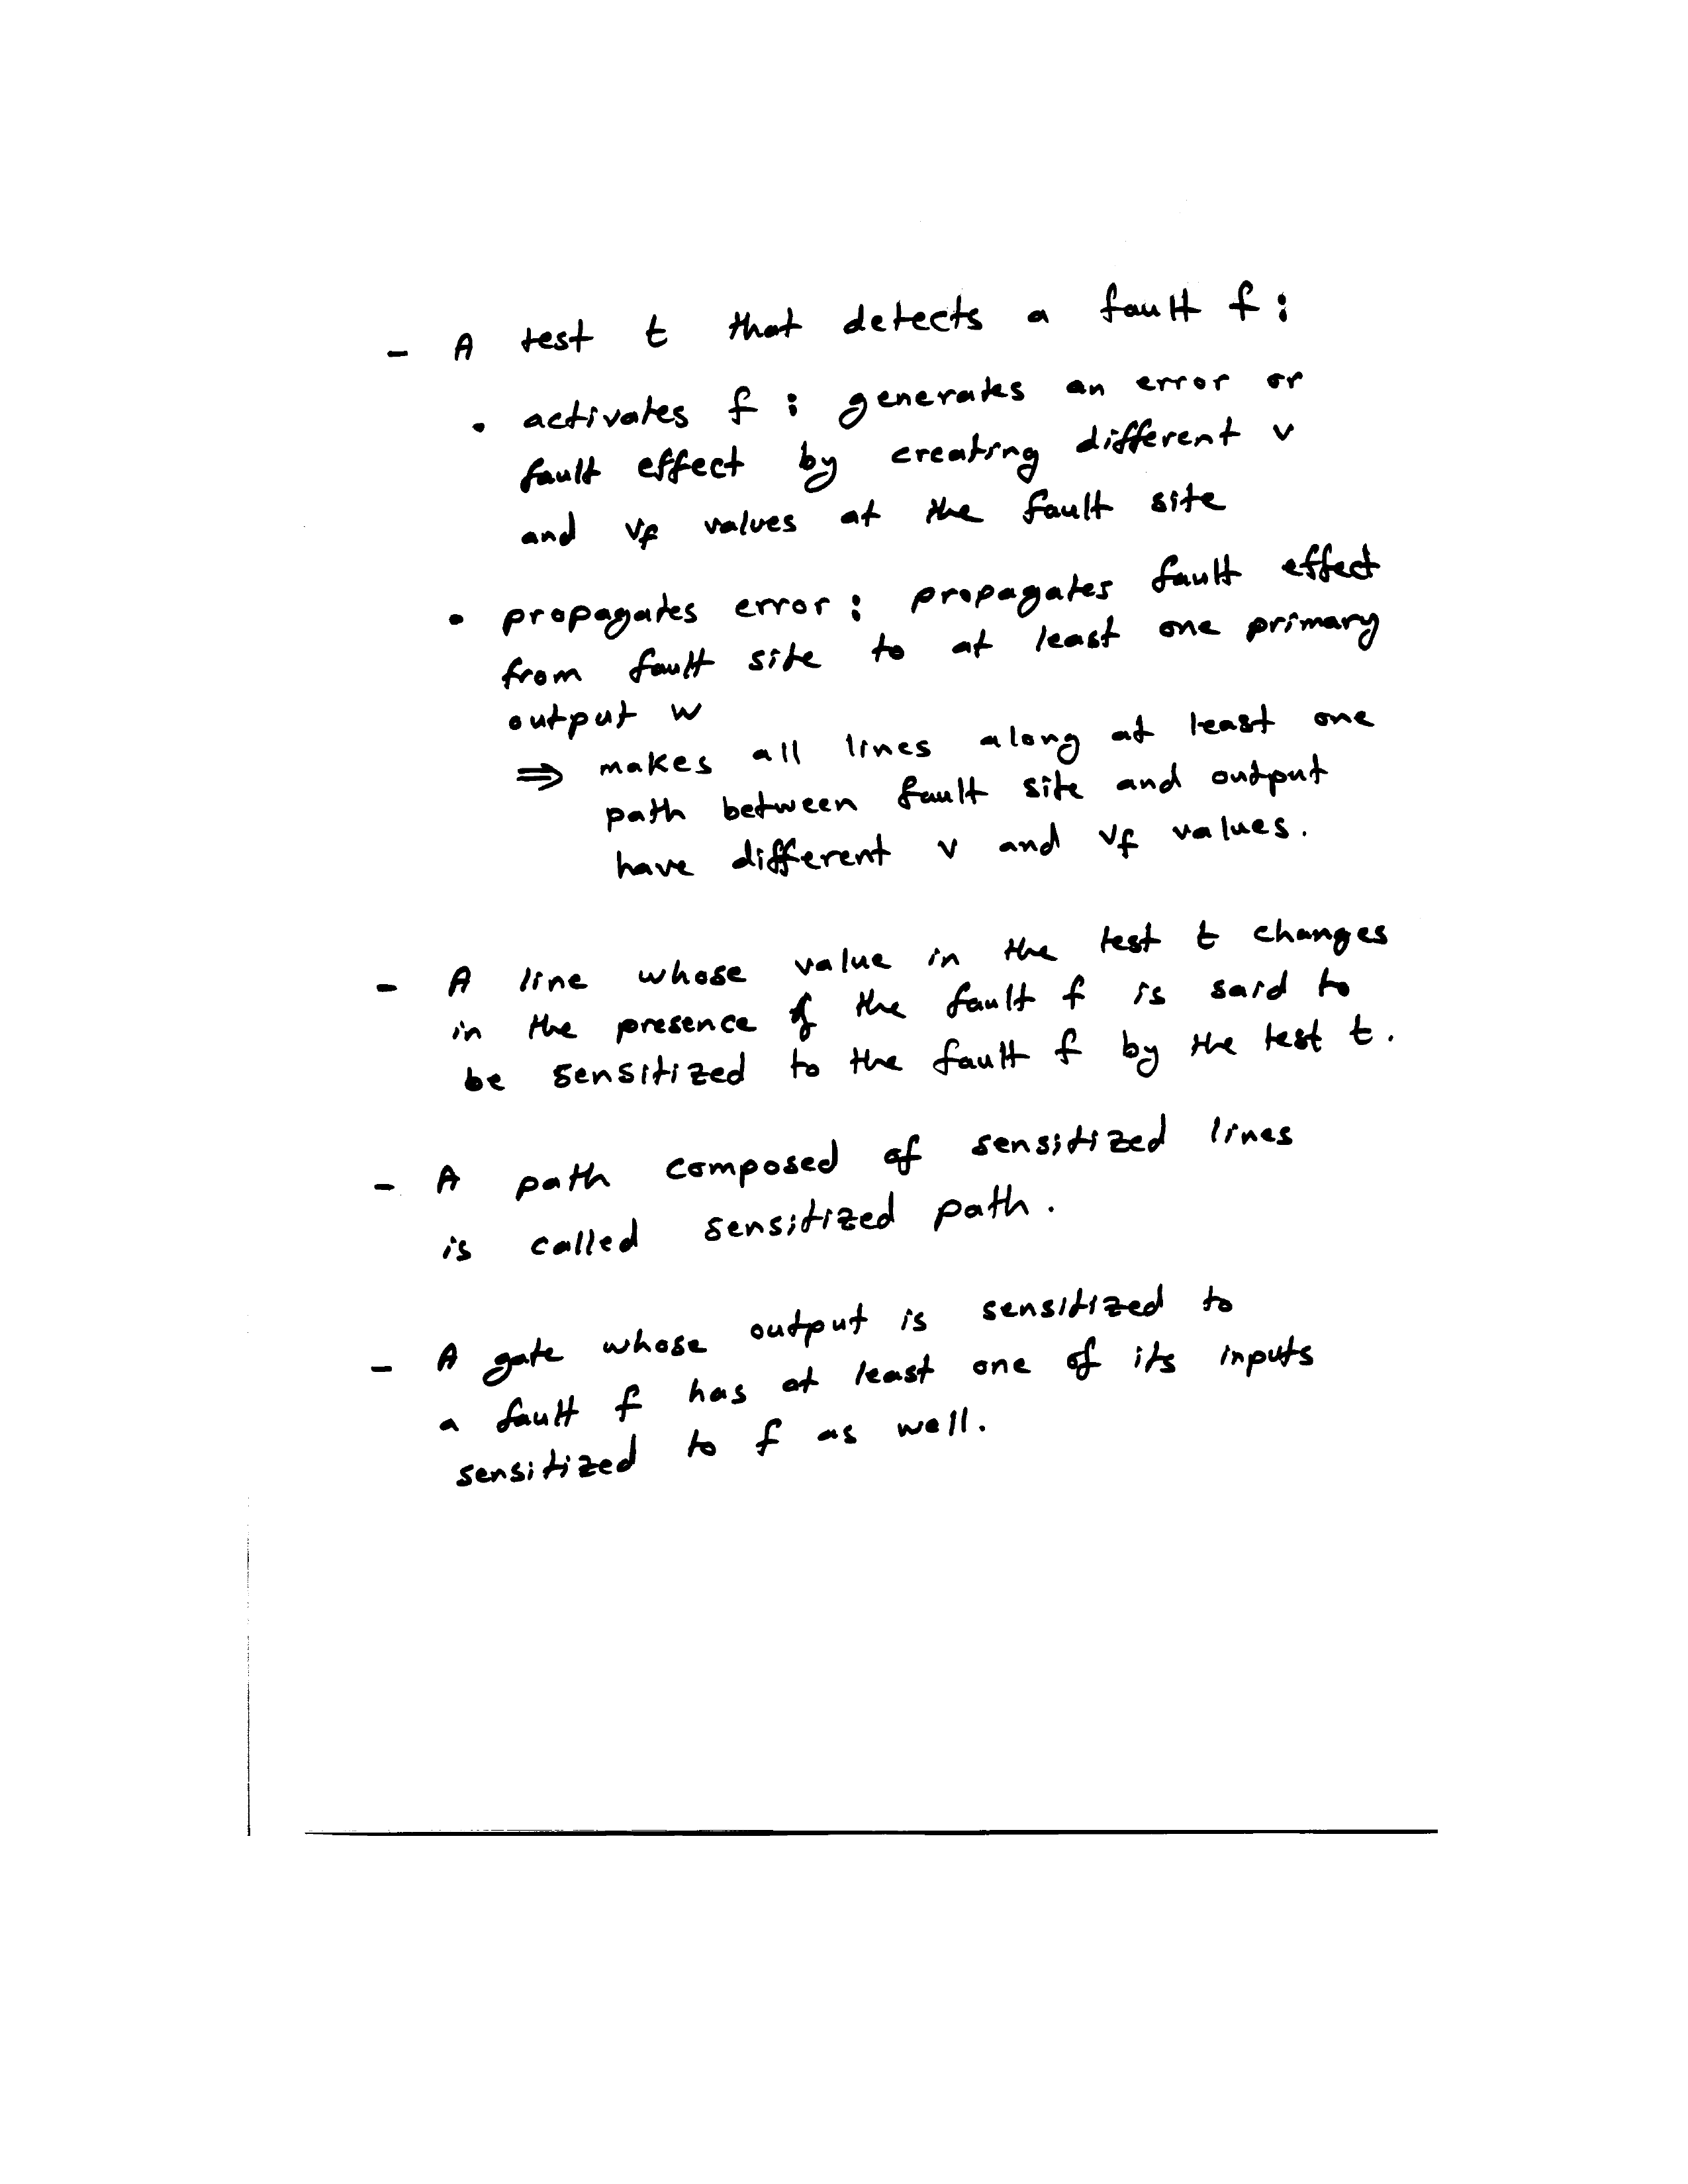 - A test t that detects a fault f :
• activates f : generates an error or
fault effect by creating different v
and vf values at the fault site
• propagates error : propagates fault effect
from fault site to at least one primary
output w
⇒ makes all lines along at least one
path between fault site and output
have different v and vf values.
- A line whose value in the test t changes
in the presence of the fault f is said to
be sensitized to the fault f by the test t.
- A path composed of sensitized lines
is called sensitized path.
- A gate whose output is sensitized to
a fault f has at least one of its inputs
sensitized to f as well.